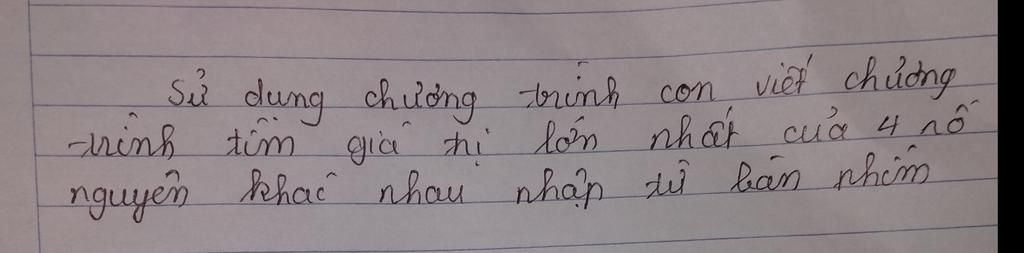 Sử dụng chương trình con viết chương
trình tìm giá trị lớn nhất của 4 số
nguyên khác nhau nhập từ bàn phím